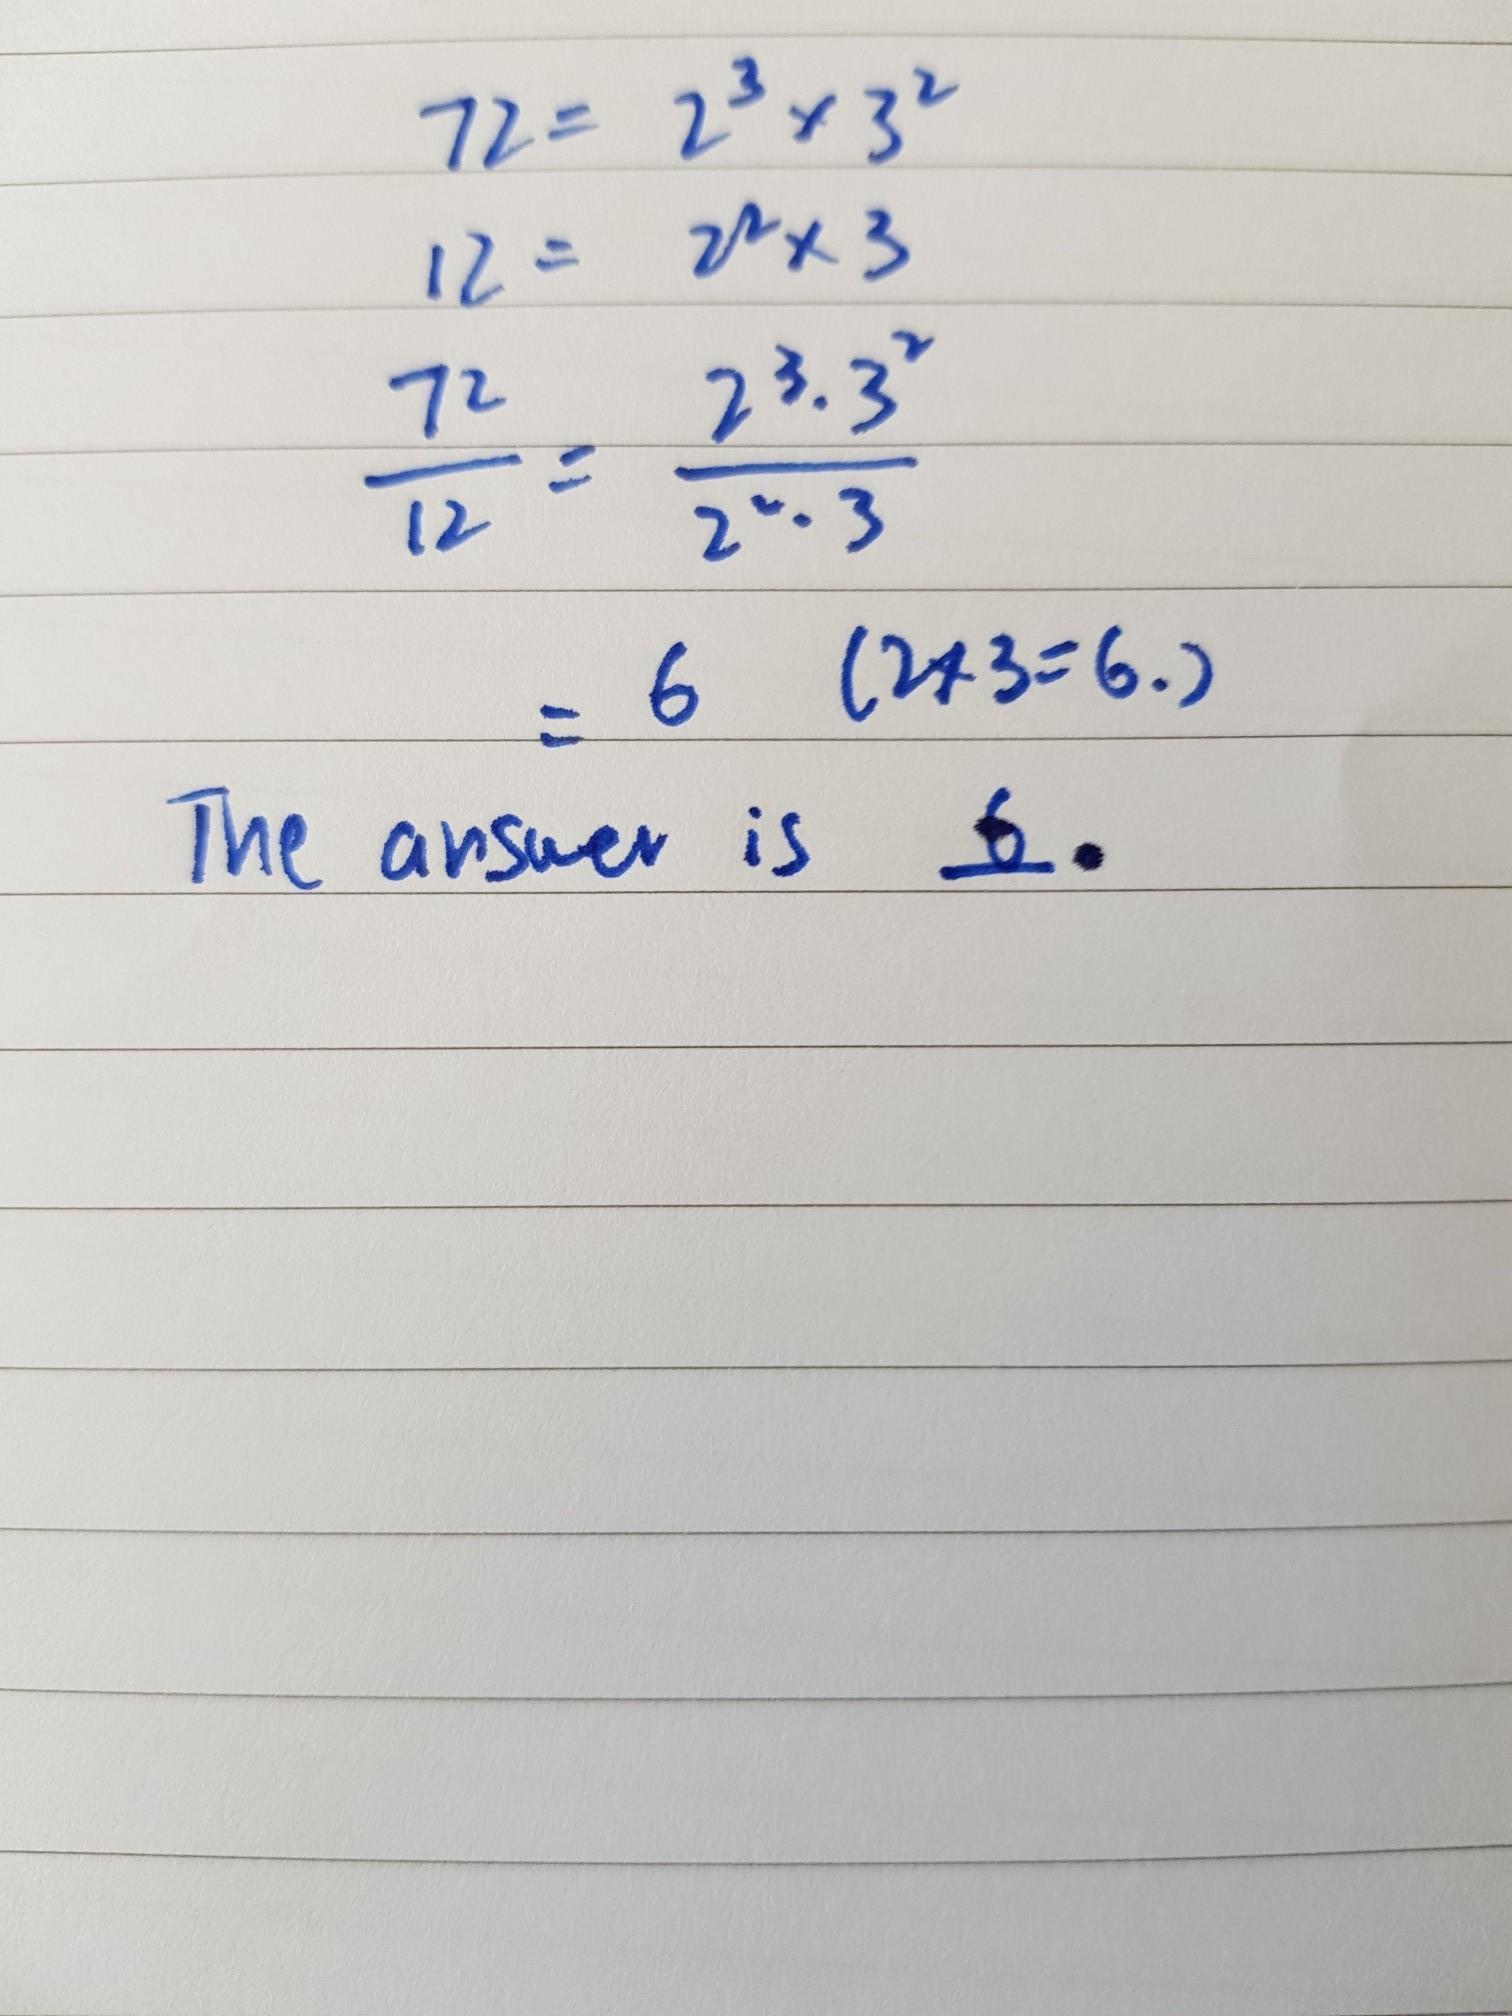 72 = 2³ × 3²
12 = 2² × 3
72/12 = 2³·3²/2²·3
= 6 (2×3=6.)
The answer is 6.